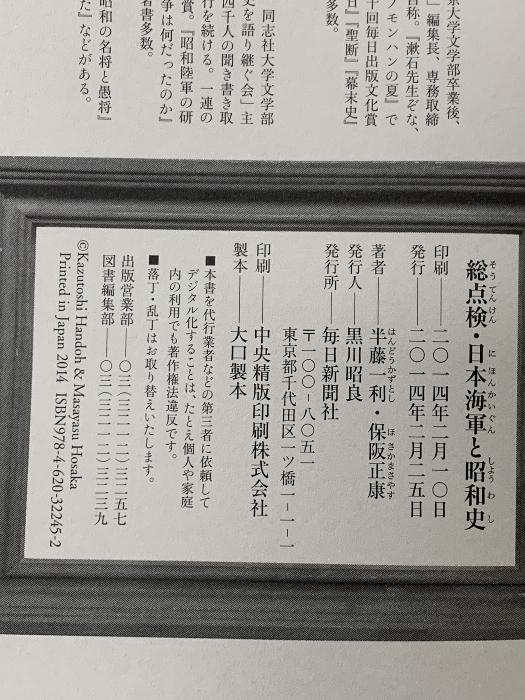 京大学文学部卒業後、
」編集長、専務取締
自称。『漱石先生ぞな、
ノモンハンの夏』で
十回毎日出版文化賞
日』『聖断』『幕末史』
多数。
同志社大学文学部
史を語り継ぐ会」主
四千人の聞き書き取
行を続ける。一連の
賞。『昭和陸軍の研
争は何だったのか』
著書多数。
昭和の名将と愚将』
た』などがある。
総点検・日本海軍と昭和史
そうてんけん にほんかいぐん しょうわし
印刷――二〇一四年二月一〇日
発行――二〇一四年二月二五日
著者――半藤一利・保阪正康
はんどうかずとし ほさかまさやす
発行人――黒川昭良
発行所――毎日新聞社
〒一〇〇-八〇五一
東京都千代田区一ツ橋一-一-一
印刷――中央精版印刷株式会社
製本――大口製本
■本書を代行業者などの第三者に依頼して
デジタル化することは、たとえ個人や家庭
内の利用でも著作権法違反です。
■落丁・乱丁はお取り替えいたします。
出版営業部――〇三(三二一二)三二五七
図書編集部――〇三(三二一二)三二三九
©Kazutoshi Handoh & Masayasu Hosaka
Printed in Japan 2014 ISBN978-4-620-32245-2